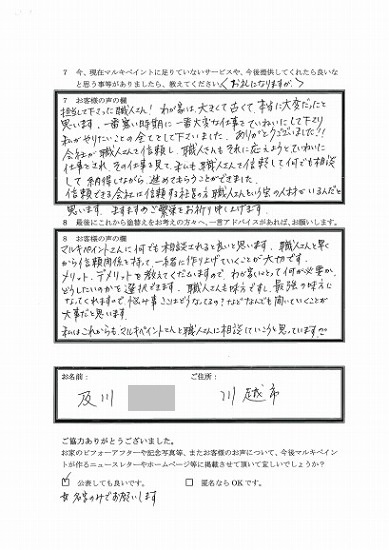 7 今、現在マルキペイントに足りていないサービスや、今後提供してくれたら良いな
と思う事等がありましたら、教えてください（お礼になりますが、）
7 お客様の声の欄
担当して下さった職人さん！わが家は、大きくて古くて、本当に大変だったと
思います。一番暑い時期に一番大変な仕事をていねいにして下り
私がやりたいことの全てをして下さいました。ありがとうございました!!
会社が職人さんを信頼し、職人さんもそれに応えようとていねいに
仕事をされ、その仕事を見て、私も職人さんを信頼して何でも相談
して納得しながら、進めてもらうことができました。
信頼できる会社に信頼する社員の方、職人さんという宝の人材がいるんだと
思います。ますますのご繁栄をお祈り申し上げます。
8 最後にこれから塗替えをお考えの方々へ、一言アドバイスがあれば、お願いします。
8 お客様の声の欄
マルキペイントさんに何でも相談されると良いと思います。職人さんと早く
から信頼関係を持って、一緒に作り上げていくことが大切です。
メリット、デメリットを教えてくださいますので、わが家にとって何が必要か、
どうしたいのかを選択できます。職人さんも味方ですし、最強の味方に
なってくれますので悩み事、ここはどうなってるの？などなんでも聞いていくことが
大事だと思います。
私はこれからも、マルキペイントさんと職人さんに相談していこうと思っています。
お名前：
ご住所：
及川
川越市
ご協力ありがとうございました。
お家のビフォーアフターや記念写真等、またお客様のお声について、今後マルキペイン
トが作るニュースレターやホームページ等に掲載させて頂いて宜しいでしょうか？
☑ 公表しても良いです。 □ 匿名なら OK です。
名字のみでお願いします